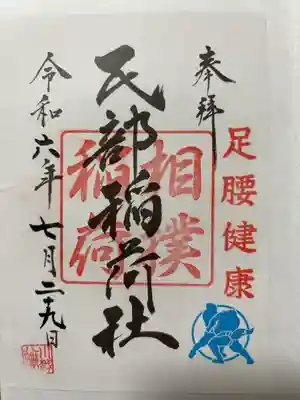 奉拝
足腰健康
民部稲荷社
相撲
稲荷
令和六年 七月二十九日